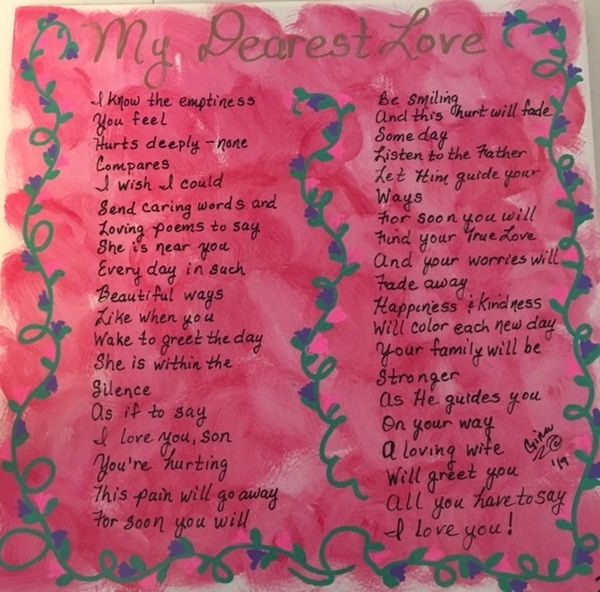 My Dearest Love
I know the emptiness
You feel
Hurts deeply - none
Compares
I wish I could
Send caring words and
Loving poems to say
She is near you
Every day in such
Beautiful ways
Like when you
Wake to greet the day
She is within the
Silence
As if to say
I love you, son
You're hurting
This pain will go away
For soon you will
Be smiling
And this hurt will fade
Some day
Listen to the Father
Let Him guide your
Ways
For soon you will
Find your True Love
And your worries will
Fade away
Happiness & Kindness
Will color each new day
Your family will be
Stronger
As He guides you
On your way
A loving wife
Will greet you
All you have to say
I love you!
Gina
'19